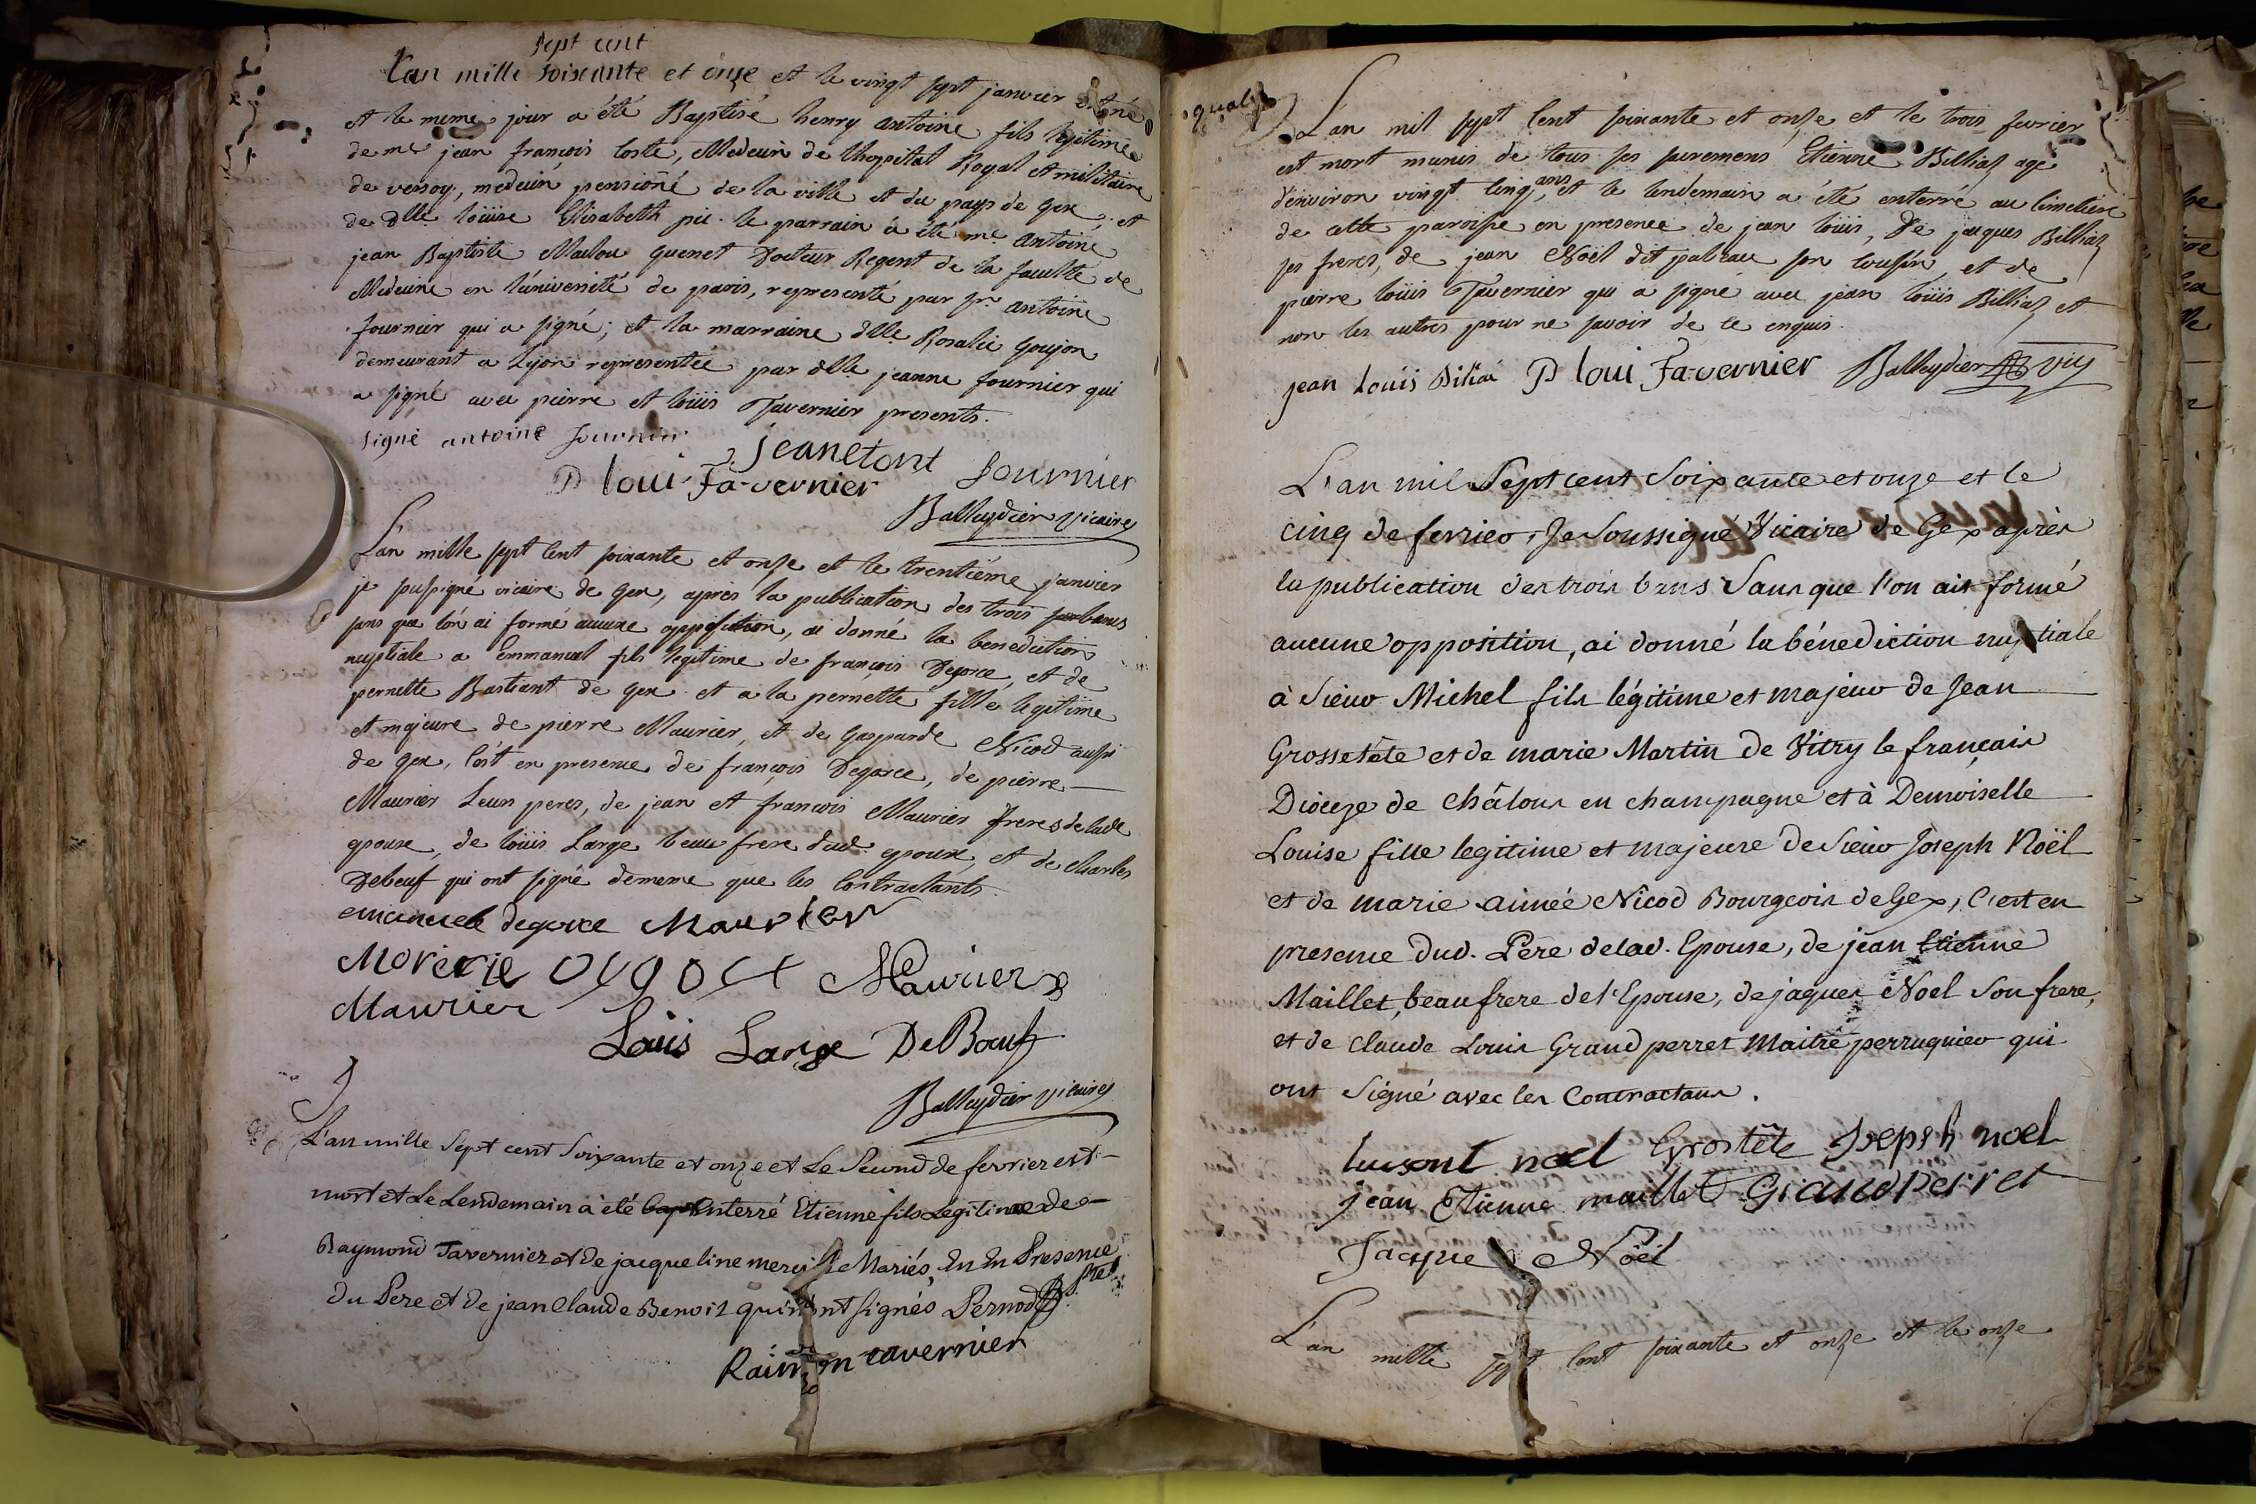 sept cent
L'an mille soixante et onze et le vingt sept janvier est né
et le meme jour a été Baptisé henry antoine fils legitime
de mr jean francois Coste, Medecin de l'hopital Royal et militaire
de versoy, medecin pensioné de la ville et du pays de Gex et
de dlle loüise Elisabeth pic. le parrain à été mr Antoine
jean Baptiste Mailou quenet Docteur Regent de la faculté de
Medecine en l'université de paris, representé par sr antoine
fournier qui a signé; et la marraine dlle Rosalie Goujon
demeurant a Lyon representée par dlle jeanne fournier qui
a signé avec pierre et loüis Tavernier presents.
signé antoine fournier
jeanetont fournier
P loui Ta-vernier
Balleydier vicaire
L'an mille sept cent soixante et onze et le trentième janvier
je soussigné vicaire de Gex, apres la publication des trois bans
sans que l'on ai formé aucune opposition, ai donné la benediction
nuptiale a Emmanuel fils legitime de françois Degorce, et de
pernette Bastiant de Gex et a la pernette fille legitime
et majeure de pierre Maurier, et de Gasparde Nicod aussi
de Gex, c'est en presence de françois Degorce, de pierre
Maurier Leurs peres, de jean et francois Maurier freres de lade
epouse, de loüis Large beau frere dud. epoux, et de charles
Debeuf qui ont signé dememe que les Contractants.
emanuel degorce Maurier
Morerie Maurier
Maurier
Loüis Large DeBoeuf
Balleydier vicaire
L'an mille sept cent soixante et onze et Le Second de fevrier est
mort et Le Lendemain à été enterré Etienne fils Legitime de
Raymond Tavernier et de jacqueline Mariés, En Presence
du Pere et de jean Claude Benoit qui ont signés Pernod ptre
Raimon tavernier
L'an mil sept cent soixante et onze et le trois fevrier
est mort munis de tous ses sacremens Etienne Billiaz agé
d'environ vingt cinq ans, et le lendemain a été enterré au cimetiere
de cette paroisse en presence de jean loüis, De jacques Billiaz
ses freres, de jean Noël dit pableau son cousin, et de
pierre loüis Tavernier qui a signé avec jean loüis Billiaz et
non les autres pour ne savoir de ce enquis.
jean Louis Biliaz P loui Ta-vernier Balleydier vic
L'an mil Sept cent Soixante et onze et le
cinq de fevrier, Je Soussigné Vicaire de Gex après
la publication des trois bans Sans que l'on ait formé
aucune opposition, ai donné la bénediction nuptiale
à Sieur Michel fils légitime et majeur de Jean
Grossetête et de marie Martin de Vitry le français
Diocèze de Châlons en champagne et à Demoiselle
Louise fille legitime et majeure de Sieur Joseph Noël
et de marie aimée Nicod Bourgeois de Gex, C'est en
presence dud. Père de lad. Epouse, de jean Etienne
Maillet, beaufrere de l'Epouse, de jaques Noel Son frere,
et de Claude Louis Grand perret Maitre perruquier qui
ont Signé avec les Contractans.
luisont noel Grostête Joseph noel
jean Etienne maillet Grandperret
Jacque Noël
L'an mille sept cent soixante et onze et le onze